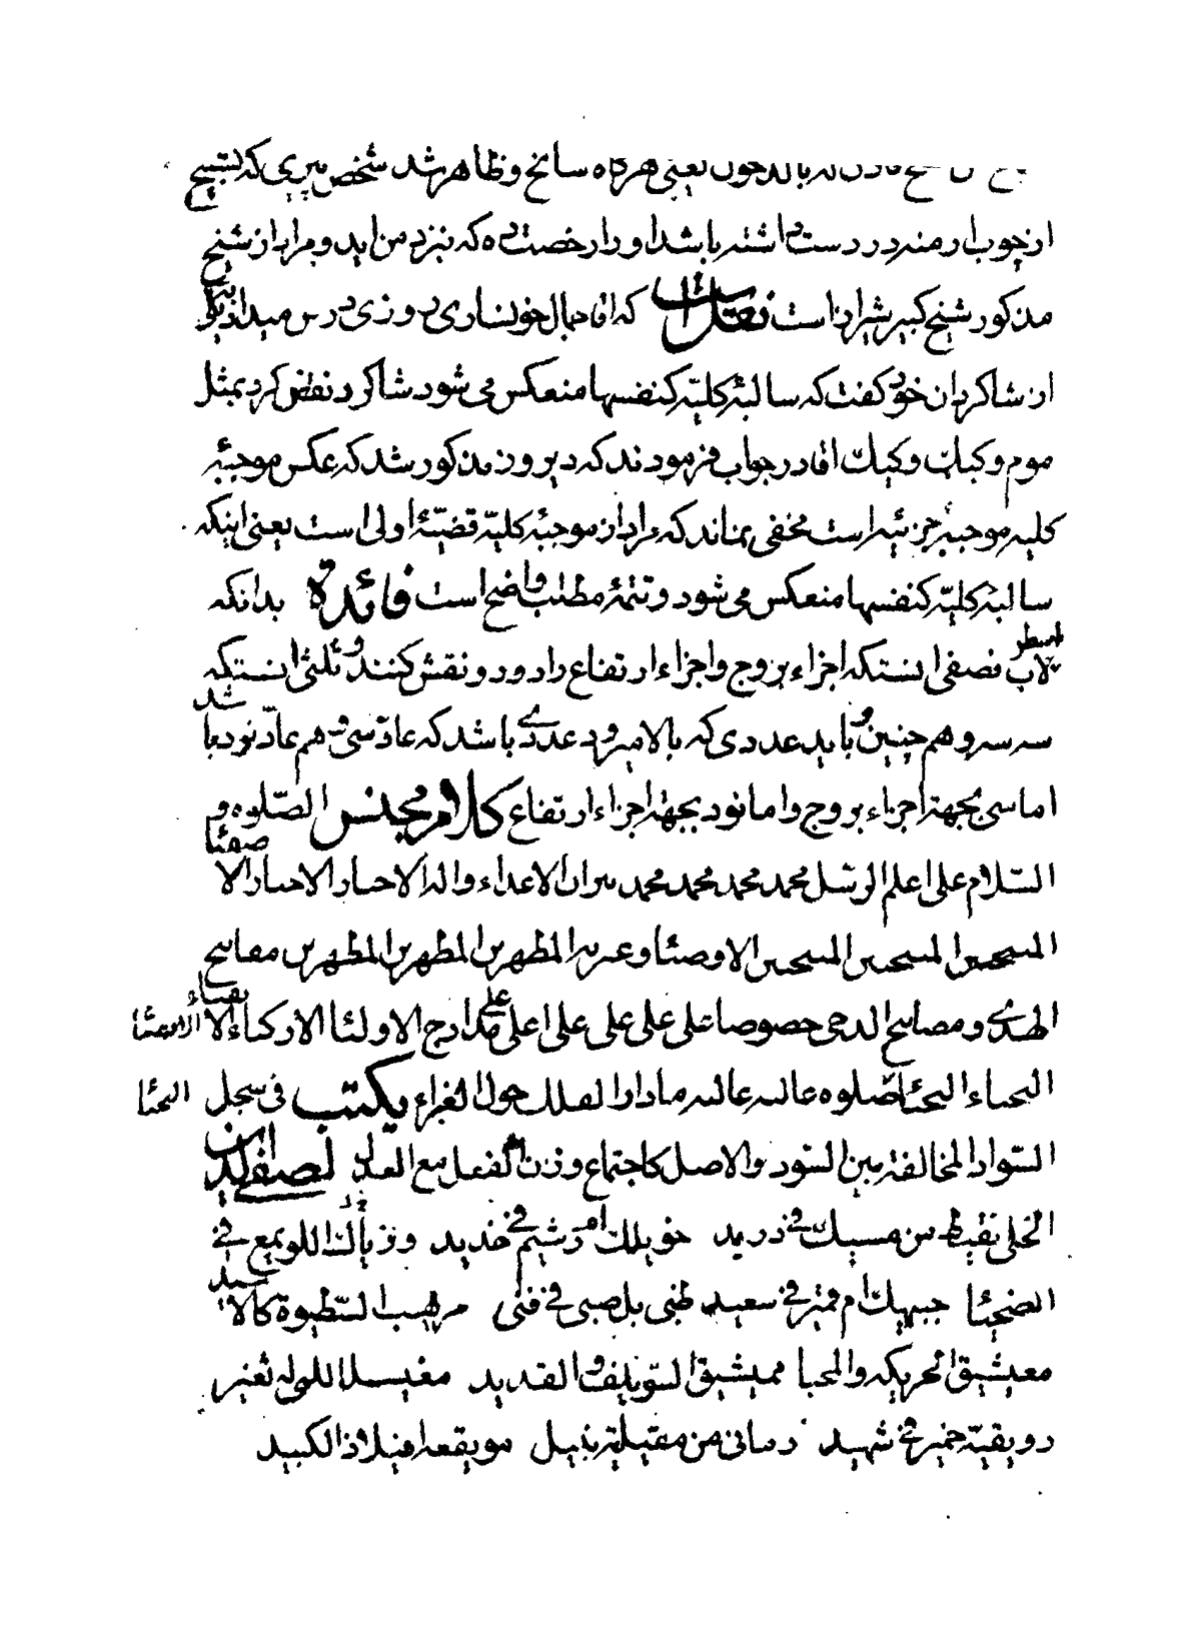 یعنی هرگاه سانح و ظاهر شد شخص پیری که تسبیح
از چوب ارمنه در دست داشته باشد او را رخصت ده که نزد من اید و مراد از شیخ
مذکور شیخ کبیر شیراز است نقلست که اقا جمال خونساری روزی درس میداد یکی
از شاکردان خود کفت که سالبهٔ کلیّه کنفسها منعکس می شود شاکرد نقض کرد بمثل
موم و کبک و کپک اقا در جواب فرمودند که دیروز مذکور شد که عکس موجبهٔ
کلیه موجبهٔ جزئیه است مخفی نماند که مراد از موجبهٔ کلیّه قضیّهٔ اولی است یعنی اینکه
سالبهٔ کلیّه کنفسها منعکس می شود و تتمهٔ مطلب واضح است فائدة بدانکه
اسطرلاب نصفی انستکه اجزاء بروج و اجزاء ارتفاع را دو دو نقش کنند و ثلثی انستکه
سه سه و هم چنین و باید عددی که بالا میرود عددی باشد که عادّ سی و هم عادّ نود باشد
اما سی بجهة اجزاء بروج و اما نود بجهة اجزاء ارتفاع کلام مجنس الصّلوه و
السّلام علی اعلم الرسل محمد محمد محمد محمد الاعداء و اله الاخیار الاحبار الاصفیا
الاوصیا و المطهرین المطهرین المطهرین مفاتیح
الهدی و مصابیح الدجی خصوصا علی علی علی علی اعلی علی مدارج الاولیا الازکیاء الاتقیاء
النجباء صلوه عالیه غالیه مادار الفلک حول الغبراء یکتب فی سجل
السّواد المخالفة بین السّود والاصل کاجتماع وزن الفعل مع العدل لصفی الدین
الحلی نقیط من مسیک فی ورید خویلک ام وشیم فی خدید وذیاک اللویمع فی
الضحیّا وجیهک ام قمیر فی سعید ظبی بل صبی فی قبی مرهیب السّطیوة کالاسید
معیشیق الحریکه والمحیا ممیشیق السّویلف والقدید معیسیل اللمی له ثغیر
رویقیّه خمیر فی شهید رمانی من مقیلیه نبیل مویقعها فیلاذ الکبید